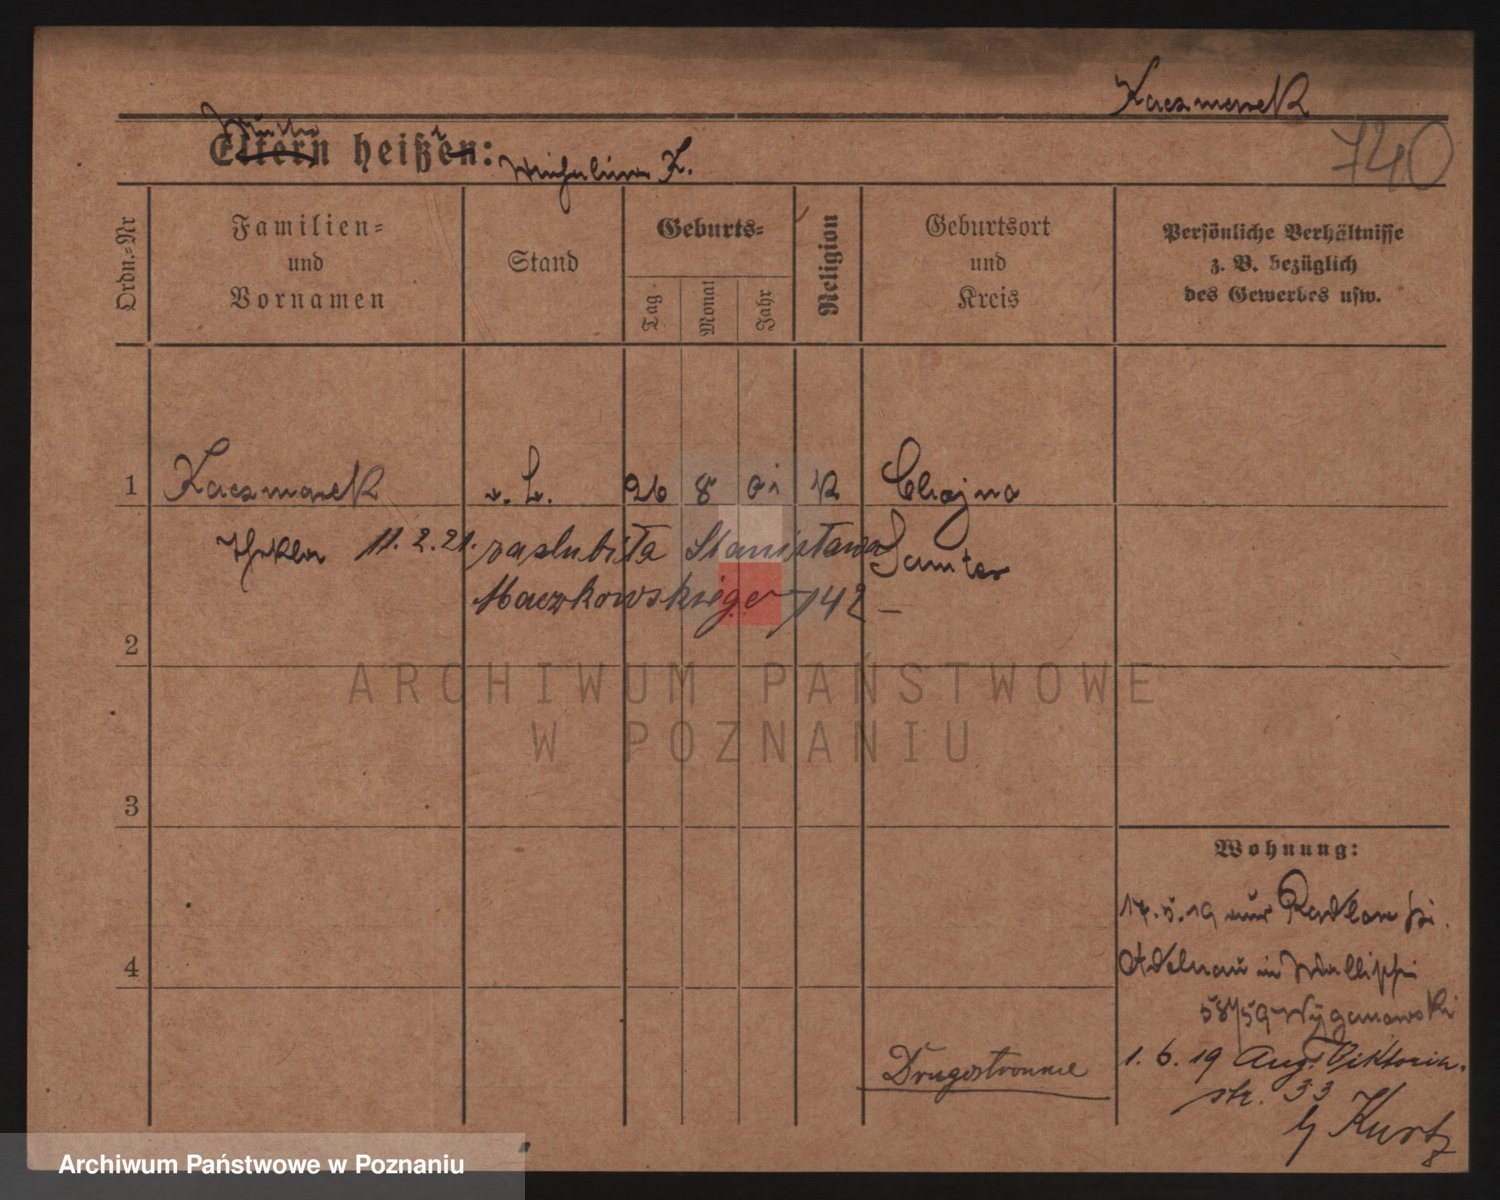 Kaczmarek
Mutter
Eltern heißen:
Michalina K.
740
Ordn.-Nr
Familien-
und
Vornamen
Stand
Geburts-
Tag
Monat
Jahr
Religion
Geburtsort
und
Kreis
Persönliche Verhältnisse
z. B. bezüglich
des Gewerbes usw.
1 Kaczmarek 26 8 01 K Chojno
Thekla 11.2.21. zaslubiła Stanisława Samter
Maczkowskiego 142 –
2
3
4
Wohnung:
17.5.19 aus Radlow Kr.
Adelnau in Wallischei
58/59 Wyganowski
1.6.19 Aug. Viktoria.
str. 33
b/ Kurtz
Drugostronnie
ARCHIWUM PAŃSTWOWE
W POZNANIU
Archiwum Państwowe w Poznaniu